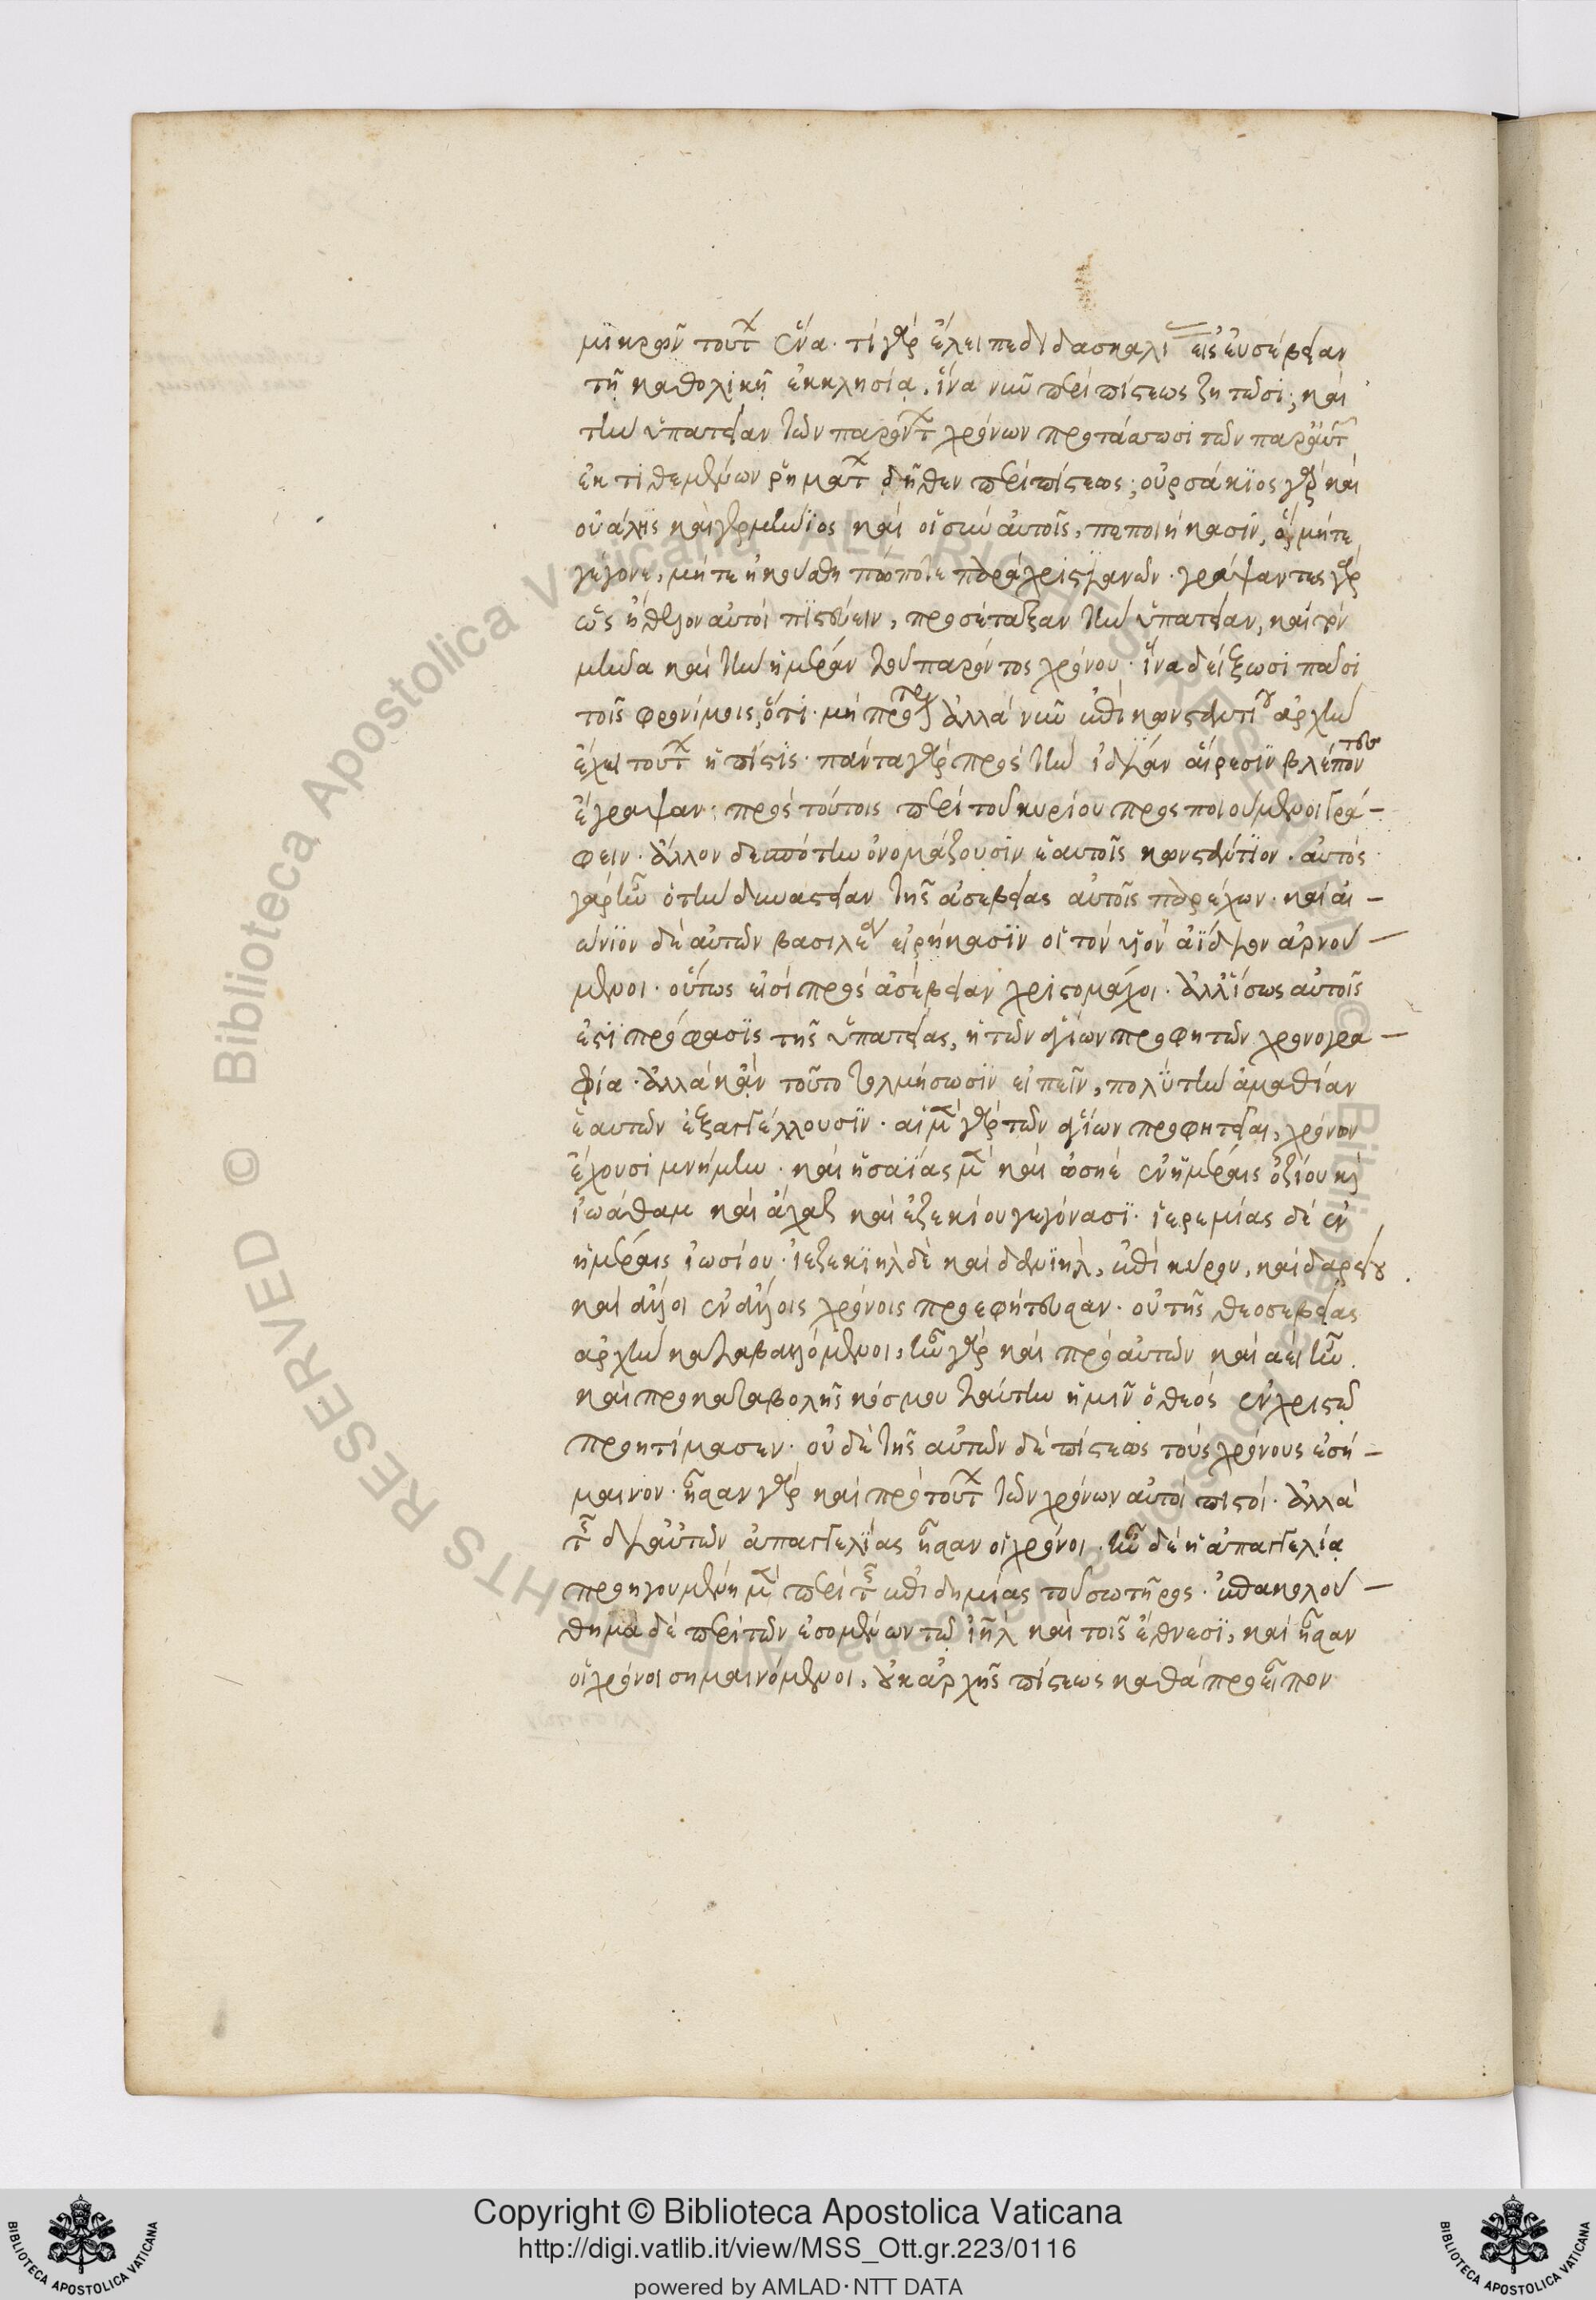 μικρῶν τούτων ἕνα. τί γὰρ ἔλειπε διδασκαλίας εἰς εὐσέβειαν
τῇ καθολικῇ ἐκκλησίᾳ, ἵνα νῦν περὶ πίστεως ζητῶσι; καὶ
τὴν ὑπατείαν τῶν παρόντων χρόνων προτάσσωσι τῶν παρ' αὐτῶν
ἐκτιθεμένων ῥημάτων δῆθεν περὶ πίστεως; οὐρσάκιος γὰρ καὶ
οὐάλης καὶ γερμήνιος καὶ οἱ σὺν αὐτοῖς, πεποιήκασιν, ὃ μήτε
γέγονε, μήτε ἠκούσθη πώποτε παρὰ χριστιανῶν. γράψαντες γὰρ
ὡς ἤθελον αὐτοὶ πιστεύειν, προσέταξαν τὴν ὑπατείαν, καὶ τὸν
μῆνα καὶ τὴν ἡμέραν τοῦ παρόντος χρόνου. ἵνα δείξωσι πᾶσι
τοῖς φρονίμοις, ὅτι μὴ πρότερον ἀλλὰ νῦν ἐπὶ κωνσταντίου ἀρχὴν
ἔχει τούτων ἡ πίστις. πάντα γὰρ πρὸς τὴν ἰδίαν αἵρεσιν βλέποντες
ἔγραψαν. πρὸς τούτοις περὶ τοῦ κυρίου προσποιούμενοι γρά-
φειν. ἄλλον δεσπότην ὀνομάζουσιν ἑαυτοῖς κωνστάντιον. αὐτὸς
γὰρ ἦν ὁ τὴν δυναστείαν τῆς ἀσεβείας αὐτοῖς παρέχων. καὶ αἰ-
ώνιον δὲ αὐτὸν βασιλέα εἰρήκασιν οἱ τὸν υἱὸν ἀΐδιον ἀρνού-
μενοι. οὕτως εἰσὶ πρὸς ἀσέβειαν χριστομάχοι. ἀλλ' ἴσως αὐτοῖς
ἐστὶ πρόφασις τῆς ὑπατείας, ἡ τῶν ἁγίων προφητῶν χρονογρα-
φία. ἀλλὰ κἂν τοῦτο τολμήσωσιν εἰπεῖν, πολὺ τὴν ἀμαθίαν
ἑαυτῶν ἐξαγγέλλουσιν. αἱ μὲν γὰρ τῶν ἁγίων προφητεῖαι, χρόνων
ἔχουσι μνήμην. καὶ ἡσαΐας μὲν καὶ ὠσηὲ ἐν ἡμέραις ὀζίου καὶ
ἰωάθαμ καὶ ἄχαζ καὶ ἐζεκίου γεγόνασι. ἱερεμίας δὲ ἐν
ἡμέραις ἰωσίου. ἰεζεκιὴλ δὲ καὶ δανιὴλ, ἐπὶ κύρου, καὶ δαρείου.
καὶ ἄλλοι ἐν ἄλλοις χρόνοις προεφήτευσαν. οὐ τῆς θεοσεβείας
ἀρχὴν καταβαλλόμενοι, ἦν γὰρ καὶ πρὸ αὐτῶν καὶ ἀεὶ ἦν.
καὶ πρὸ καταβολῆς κόσμου ταύτην ἡμῖν ὁ θεὸς ἐν χριστῷ
προητίμασεν. οὐδὲ τῆς αὐτῶν δὲ πίστεως τοὺς χρόνους ἐσή-
μαινον. ἦσαν γὰρ καὶ πρὸ τούτων τῶν χρόνων αὐτοὶ πιστοί. ἀλλὰ
τῆς δι' αὐτῶν ἀπαγγελίας ἦσαν οἱ χρόνοι. ἦν δὲ ἡ ἀπαγγελία
προηγουμένη μὲν περὶ τῆς ἐπιδημίας τοῦ σωτῆρος. ἐπακολού-
θημα δὲ περὶ τῶν ἐσομένων τῷ ἰηλ καὶ τοῖς ἔθνεσι, καὶ ἦσαν
οἱ χρόνοι σημαινόμενοι, οὐκ ἀρχῆς πίστεως καθὰ προεῖπον
Copyright © Biblioteca Apostolica Vaticana
http://digi.vatlib.it/view/MSS_Ott.gr.223/0116
powered by AMLAD·NTT DATA